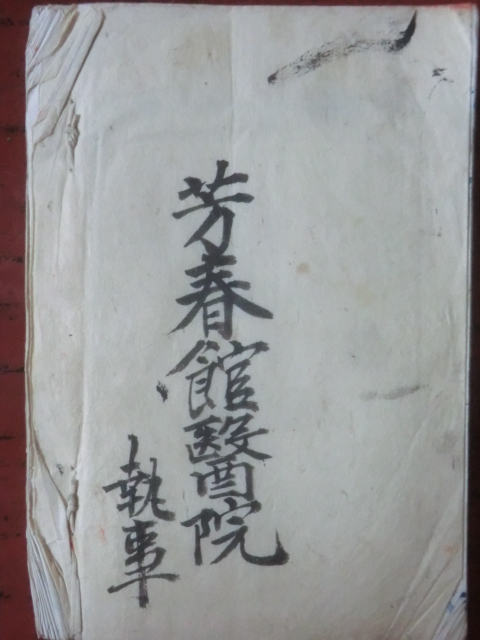 一
芳春館醫院
執事